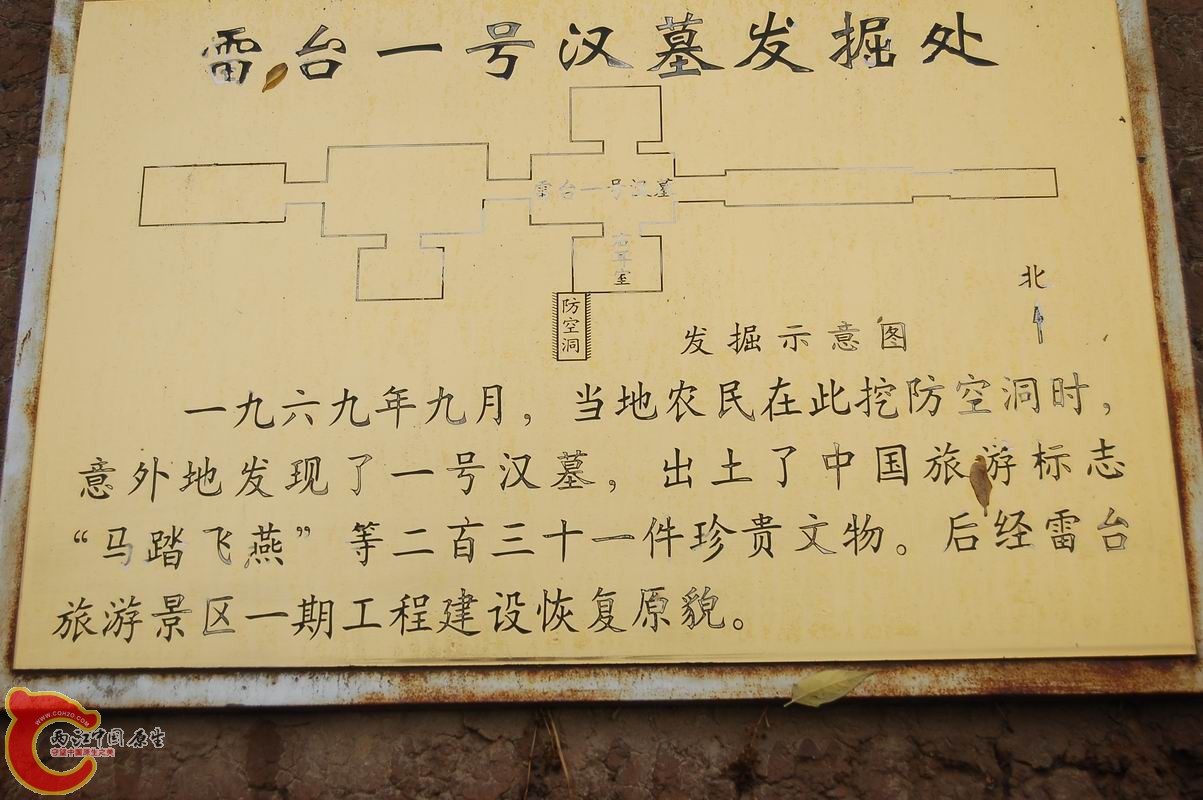 雷台一号汉墓发掘处
雷台一号汉墓
右耳室
防空洞
北
发掘示意图
一九六九年九月，当地农民在此挖防空洞时，
意外地发现了一号汉墓，出土了中国旅游标志
“马踏飞燕”等二百三十一件珍贵文物。后经雷台
旅游景区一期工程建设恢复原貌。
WWW.CQH2O.COM
两江中国原生
守望中国原生之美